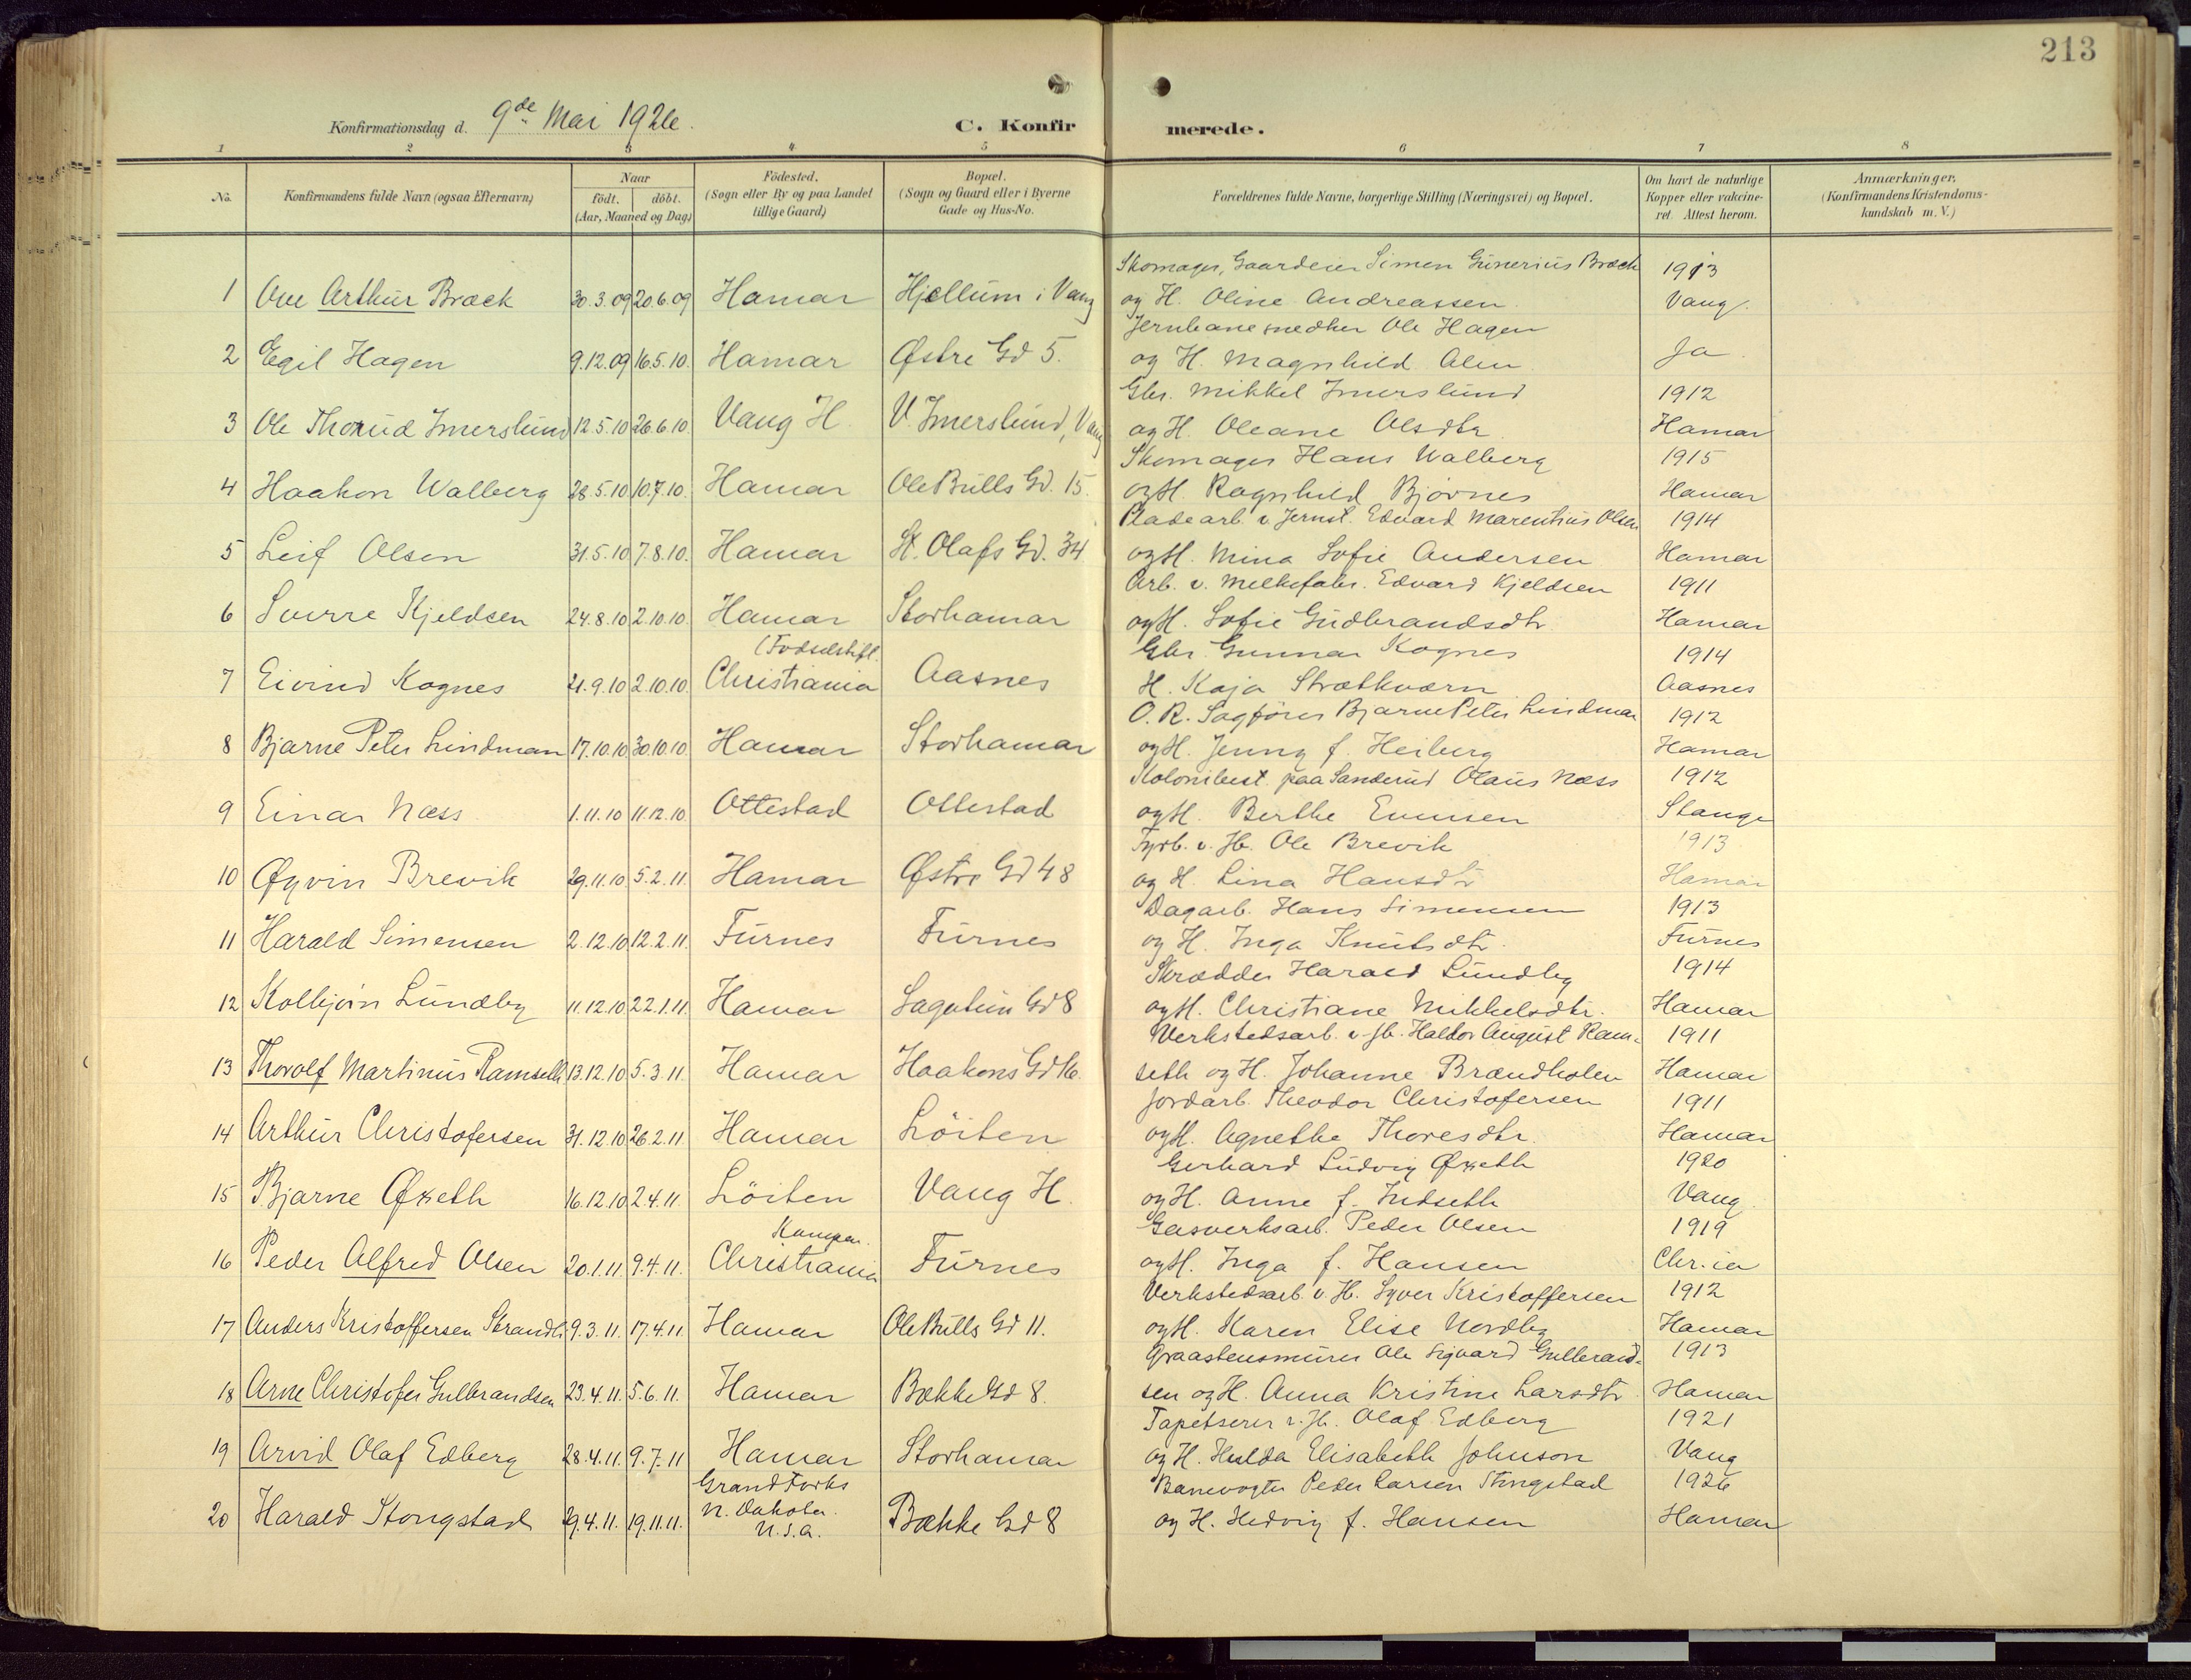 213
Konfirmationsdag d. 9de Mai 1926.
C. Konfirmerede.
1 2 3 4 5 6 7 8
No.
Konfirmandens fulde Navn (ogsaa Efternavn)
Naar
födt. döbt.
(Aar, Maaned og Dag)
Födested.
(Sogn eller By og paa Landet
tillige Gaard)
Bopæl.
(Sogn og Gaard eller i Byerne
Gade og Hus-No.
Forældrenes fulde Navne, borgerlige Stilling (Næringsvei) og Bopæl.
Om havt de naturlige
Kopper eller vakcine-
ret. Attest herom.
Anmærkninger.
(Konfirmandens Kristendoms-
kundskab m. V.)
Skomager, Gaardeier Simen Gunerius Bræck 1913
1 Ove Arthur Bræck 30.3.09 20.6.09 Hamar Hjellum i Vang og H. Oline Andreassen Vang.
Jernbanesnedker Ole Hagen
2 Egil Hagen 9.12.09 16.5.10. Hamar Østre Gd 5. og H. Magnhild Alm Ja
Gbr. Mikkel Imerslund 1912
3 Ole Thorud Imerslund 12.5.10 26.6.10. Vang H. V. Imerslund, Vang og H. Oleane Olsdtr Hamar
Skomager Hans Walberg 1915
4 Haakon Walberg 28.5.10 10.7.10. Hamar Ole Bulls Gd. 15. og H. Ragnhild Bjørnes Hamar
Pladearb. v. Jernst. Edvard Marentius Olsen 1914
5 Leif Olsen 31.5.10 7.8.10. Hamar St. Olafs Gd. 34 og H. Mina Sofie Andersen Hamar
Arb. v. Melkefabr. Edvard Kjeldsen 1911
6 Sverre Kjeldsen 24.8.10 2.10.10. Hamar Storhamar og H. Sofie Gudbrandsdtr. Hamar
(Fødselstift. Gbr. Gunnar Kognes 1914
7 Eivind Kognes 21.9.10 2.10.10. Christiania Aasnes H. Kaja Strætkværn Aasnes
O.R. Sagfører Bjarne Peter Lindman 1912
8 Bjarne Peter Lindman 17.10.10 30.10.10 Hamar Storhamar og H. Jenny f. Heiberg Hamar
Kolonibest. paa Sanderud Olaus Næss 1912
9 Einar Næss 1.11.10 11.12.10 Ottestad Ottestad og H. Berthe Evensen Stange
Fyrb. v. Jb. Ole Brevik 1913
10 Øyvin Brevik 29.11.10 5.2.11. Hamar Østre Gd 48 og H. Lina Hansdtr Hamar
Dagarb. Hans Simensen 1913
11 Harald Simensen 2.12.10 12.2.11. Furnes Furnes og H. Inga Knutsdtr. Furnes
Skrædder Harald Lundby 1914
12 Kolbjørn Lundby 11.12.10 22.1.11. Hamar Sagatun Gd 8 og H. Christiane Mikkelsdtr. Hamar
Verkstedsarb. v. Jb. Haldor August Ram- 1911
13 Thorolf Martinus Ramseth 13.12.10 5.3.11. Hamar Haakons Gd 16. seth og H. Johanne Brændholen Hamar
Jordarb. Theodor Christofersen 1911
14 Arthur Christofersen 31.12.10 26.2.11. Hamar Löiten og H. Agnethe Thoresdtr. Hamar
Gerhard Ludvig Økseth 1920
15 Bjarne Økseth 16.12.10 2.4.11. Löiten Vang H. og H. Anne f. Indseth Vang
Kampen. Gasverksarb. Peder Olsen 1919
16 Peder Alfred Olsen 20.1.11. 9.4.11. Christiania Furnes og H. Inga f. Hansen Chr.ia
Verkstedsarb. v. H. Syver Kristoffersen 1912
17 Anders Kristoffersen Strandli 9.3.11. 17.4.11. Hamar Ole Bulls Gd 11. og H. Karen Elise Nordby Hamar
Graastensmurer Ole Sigvard Gulbrand- 1913
18 Arne Christofer Gulbrandsen 23.4.11. 5.6.11. Hamar Bække Gd 8. sen og H. Anna Kristine Larsdtr Hamar
Tapetserer v. Jb. Olaf Edberg 1921
19 Arvid Olaf Edberg 28.4.11. 9.7.11 Hamar Storhamar og H. Hulda Elisabeth Johnson Vang
Grand Forks Banevogter Peder Larsen Stongstad 1926
20 Harald Stongstad 29.4.11. 19.11.11. N. Dakota. Bække Gd 8 og H. Hedvig f. Hansen Hamar
U.S.A.